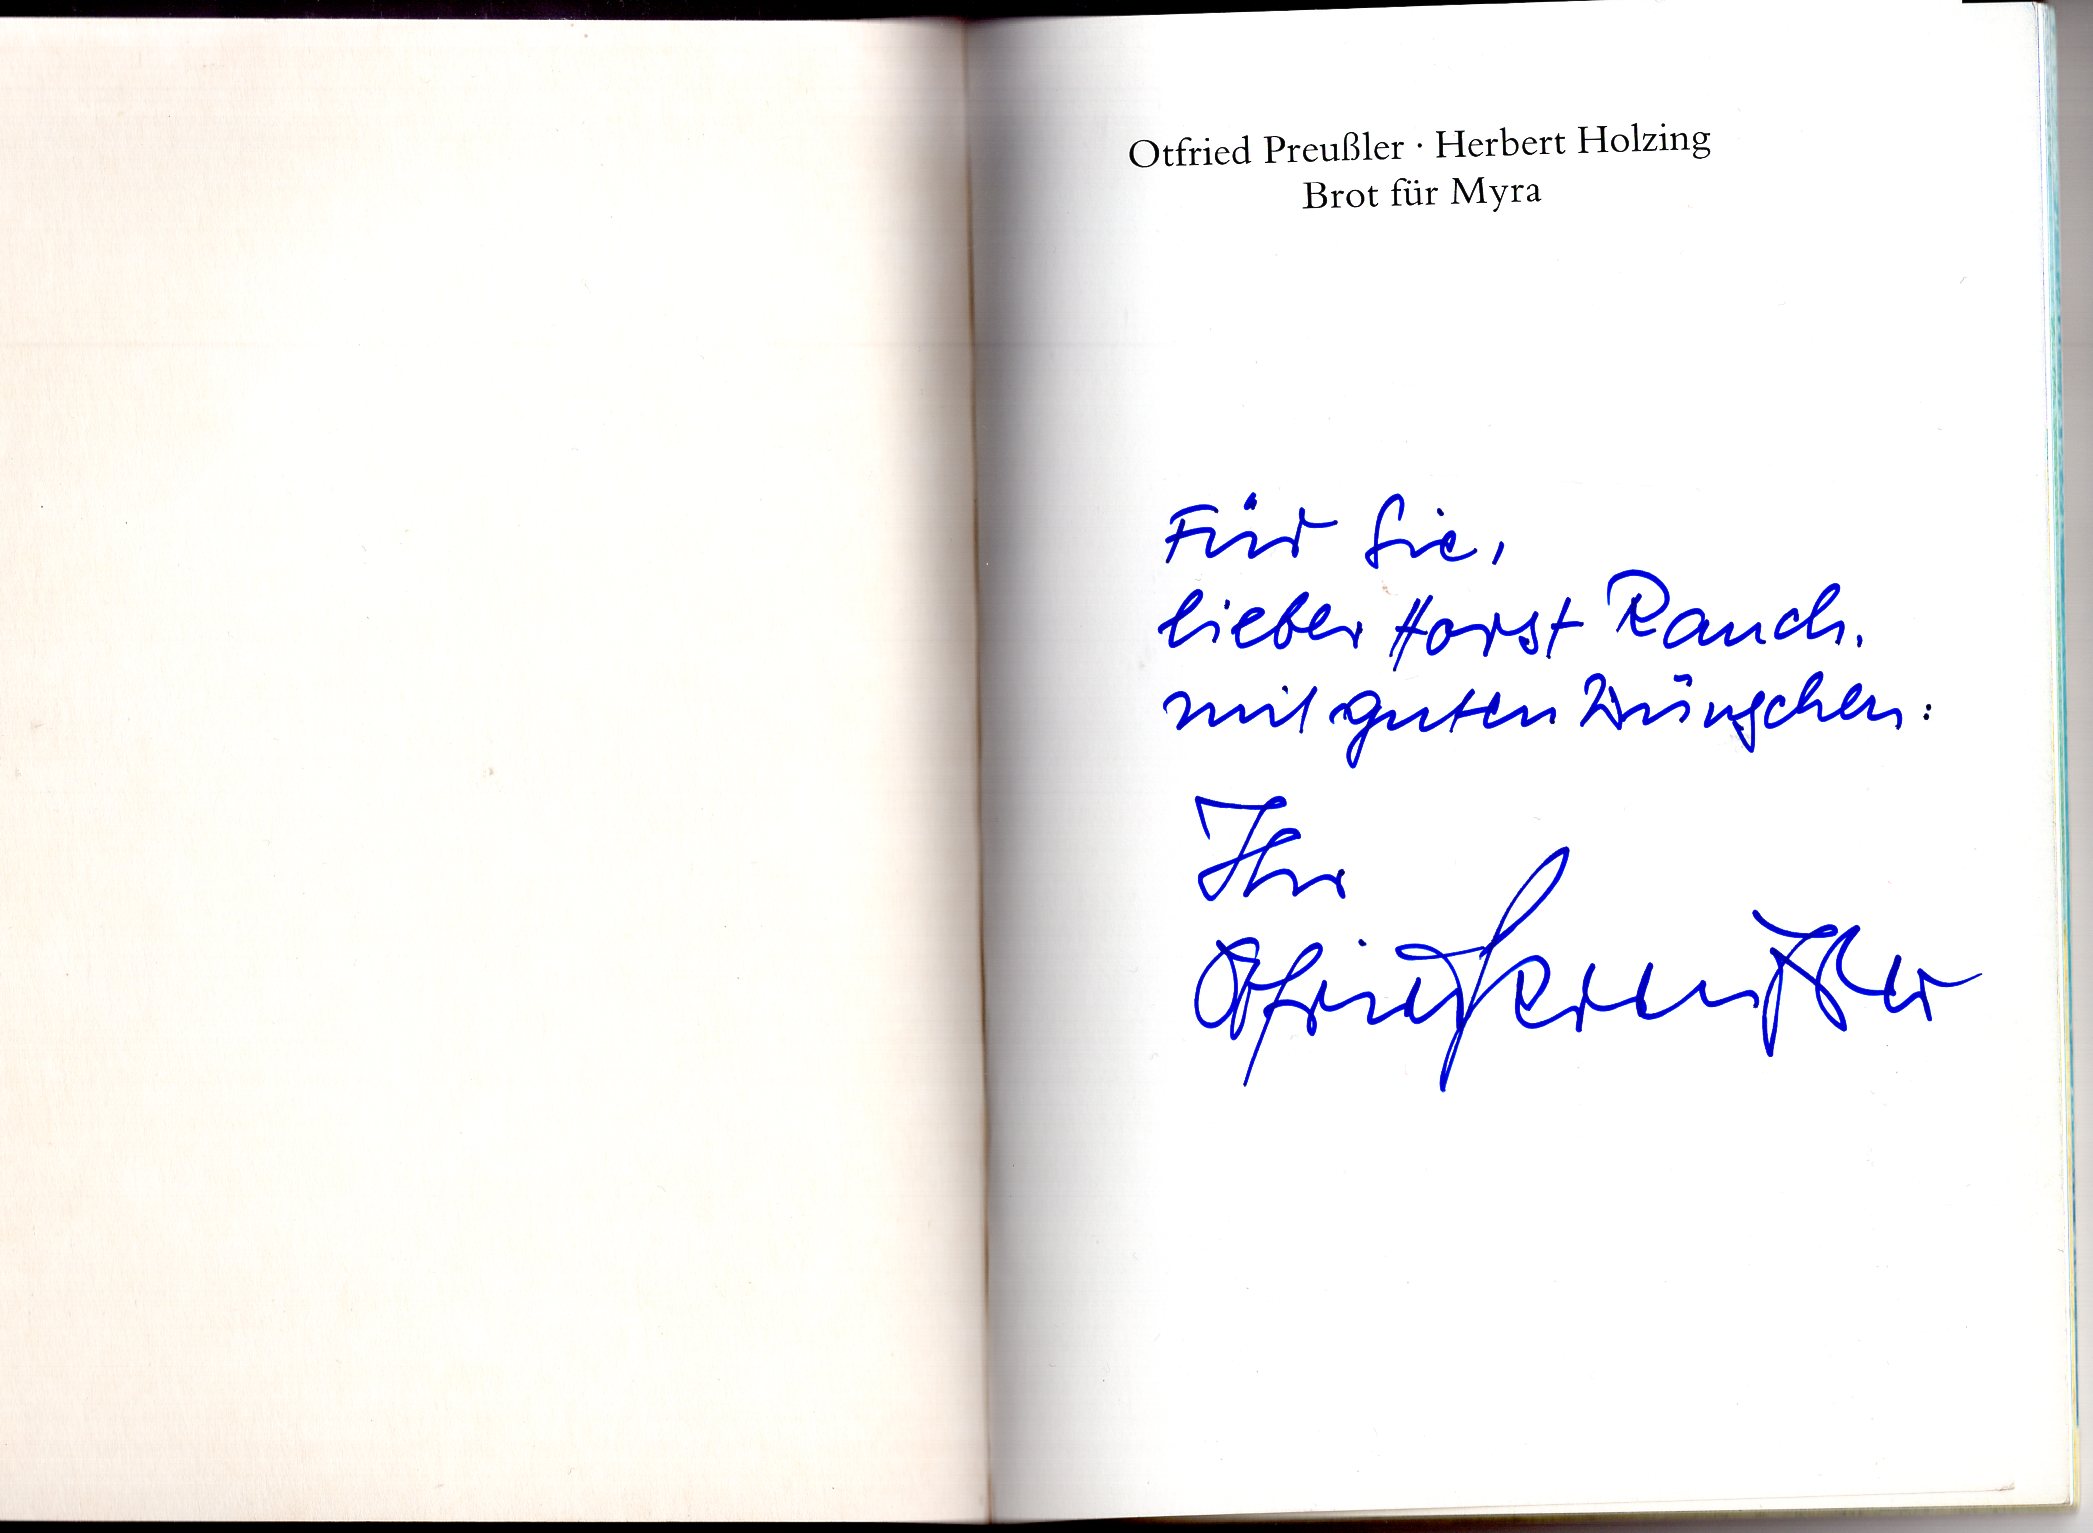 Otfried Preußler · Herbert Holzing
Brot für Myra
Für Sie,
lieber Horst Rauch,
mit guten Wünschen:
Ihr
Otfried Preußler